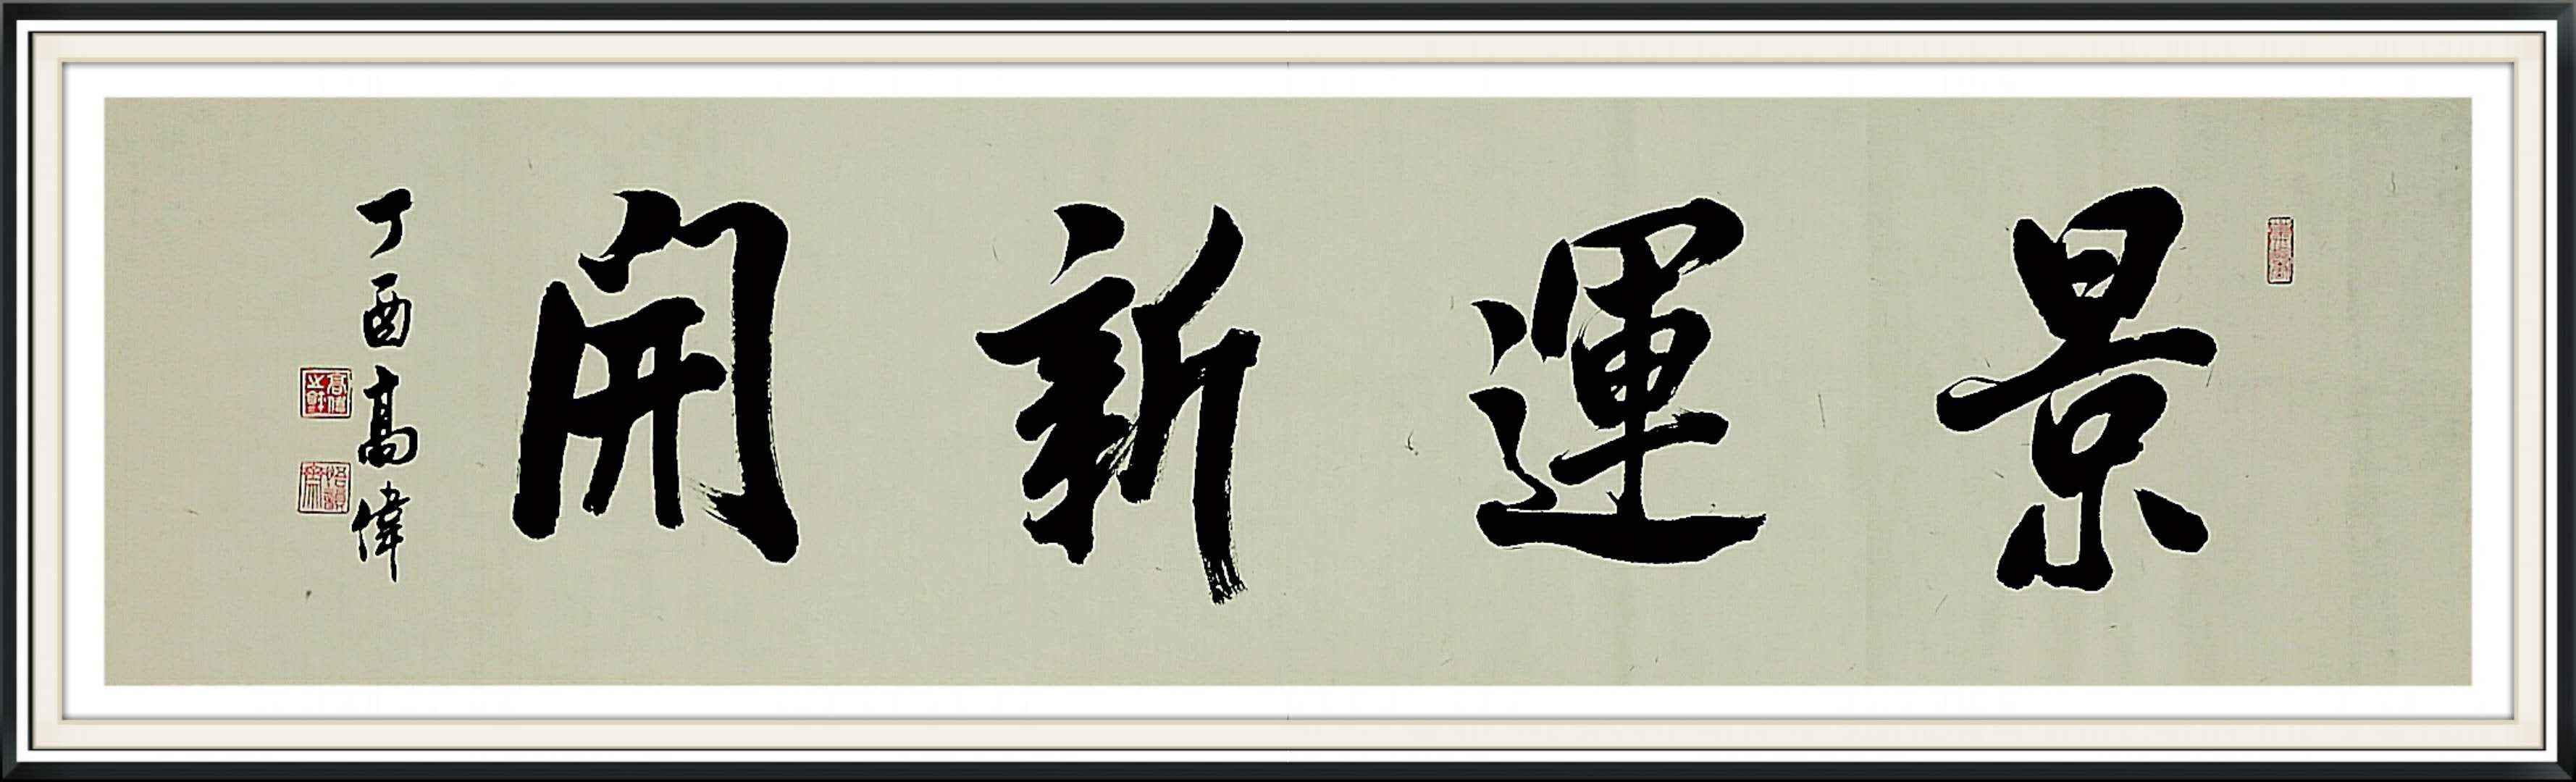 景運新開
丁酉高偉